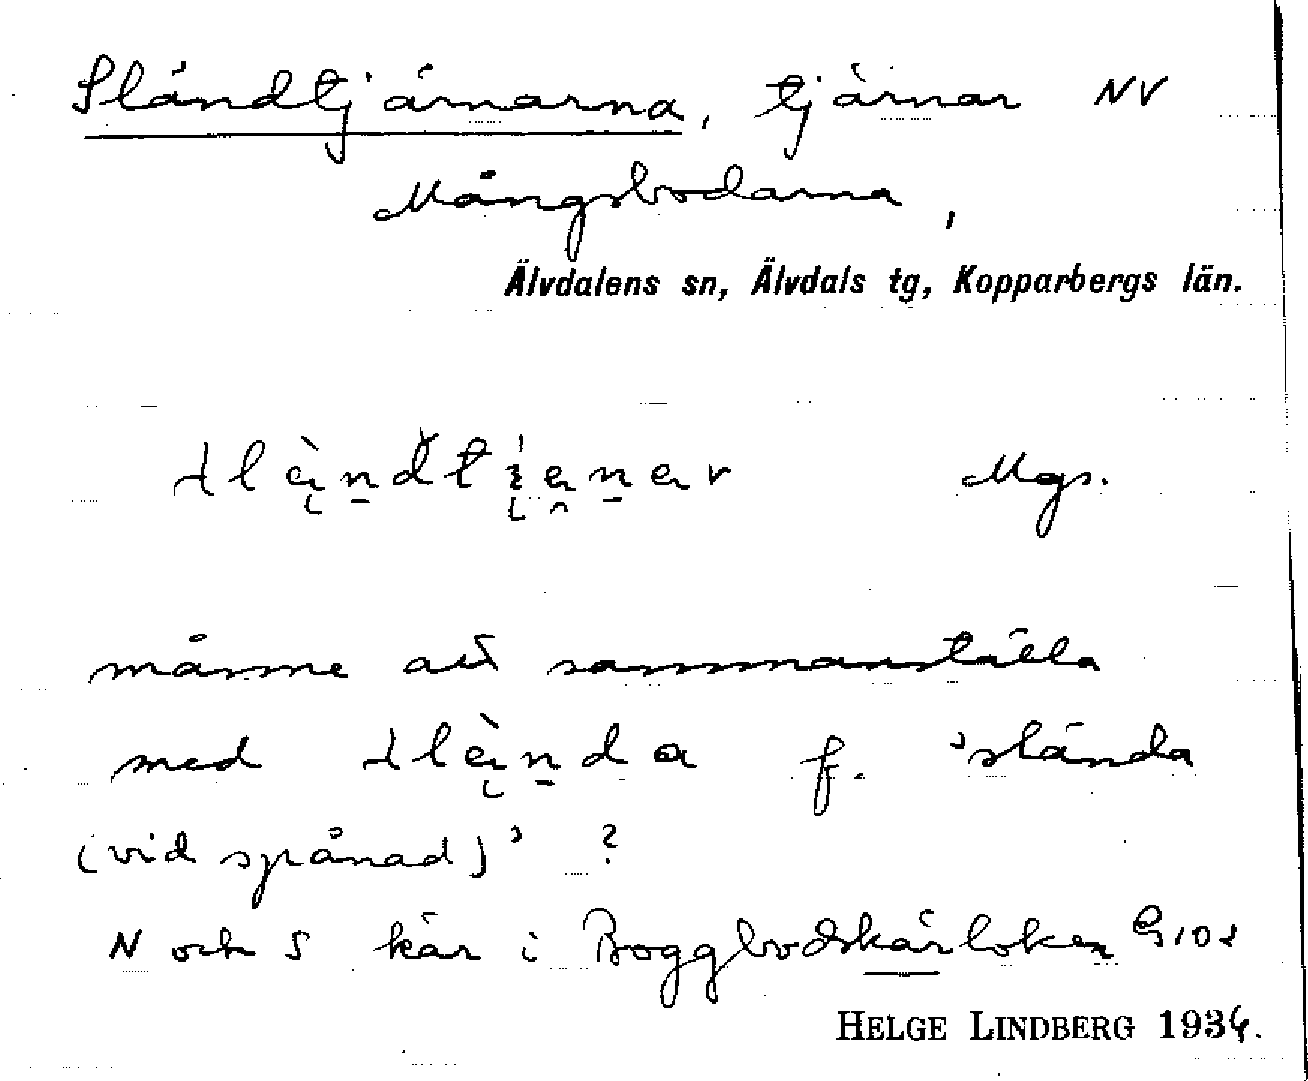 Sländtjärnarna, tjärnar NV
Mångsbodarna,
Älvdalens sn, Älvdals tg, Kopparbergs län.
Mgs.
månne att sammanställa
med f. 'slända
(vid spånad)' ?
N och S kär i Boggbodskärloken
HELGE LINDBERG 1934.